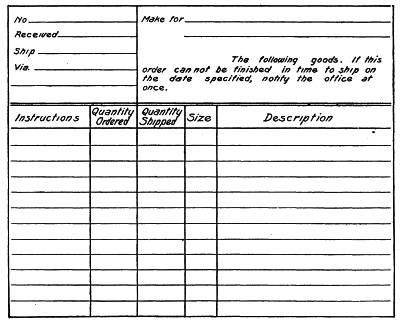 No
Received
Ship
Via.
Make for
The following goods. If this
order can not be finished in time to ship on
the date specified, notify the office at
once.
Instructions Quantity Ordered Quantity Shipped Size Description